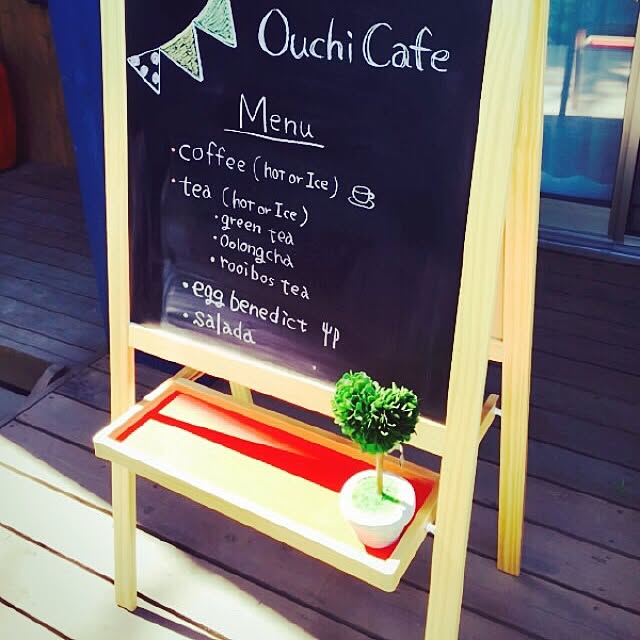 Ouchi Cafe
Menu
• coffee (HOT or Ice)
• tea (HOT or Ice)
• green tea
• Oolongcha
• rooibos tea
• egg benedict
• salada